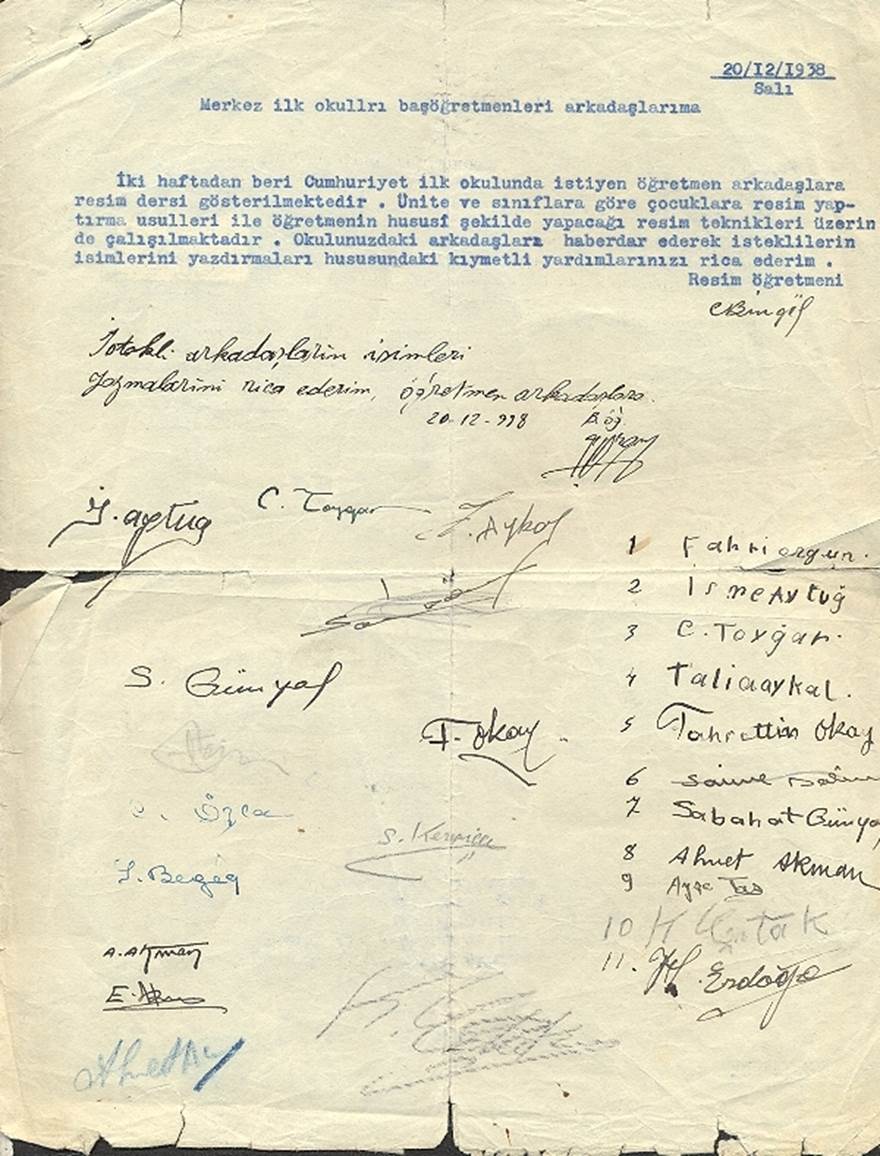 20/12/1938
Salı
Merkez ilk okullrı başöğretmenleri arkadaşlarıma
İki haftadan beri Cumhuriyet ilk okulunda istiyen öğretmen arkadaşlara
resim dersi gösterilmektedir . Ünite ve sınıflara göre çocuklara resim yap-
tırma usulleri ile öğretmenin hususî şekilde yapacağı resim teknikleri üzerin
de çalışılmaktadır . Okulunuzdaki arkadaşları haberdar ederek isteklilerin
isimlerini yazdırmaları hususundaki kıymetli yardımlarınızı rica ederim .
Resim öğretmeni
CBingöl
İstekli arkadaşların isimleri
yazmalarını rica ederim, öğretmen arkadaşlara.
20-12-938 B. öğ.
İ. aytuğ C. Toygar Z. Aykol
S. Günyal
F. Okay
C. Özca
S. Kerpiçç
İ. Begeç
A. Akman
E.
Ahmet
1 Fahri ergun.
2 İsmeAytuğ
3 C. Toygar.
4 Taliaaykal.
5 Fahrettin Okay
6
7 Sabahat Günya
8 Ahmet Akman
9 Ayşe Taş
10 H
11. Erdoğa